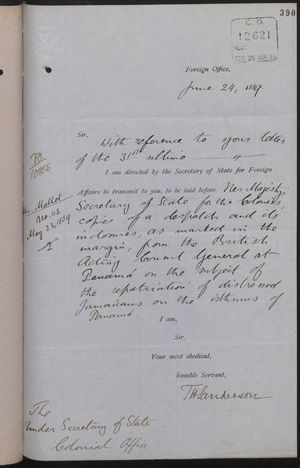 390
C. O.
12621
REC
REG 25 JUN 89
Foreign Office,
June 24, 1889
Sir,
With reference to your letter
of the 31st ultimo
I am directed by the Secretary of State for Foreign
Affairs to transmit to you, to be laid before Her Majesty's
Secretary of State for the Colonies,
copies of a despatch and its
inclosures, as marked in the
margin, from the British
Acting Consul General at
Panamá on the subject of
the repatriation of distressed
Jamaicans on the isthmus of
Panamá.
Mallet
No. 43
May 23, 1889
I am,
Sir,
Your most obedient,
humble Servant,
T H Sanderson
The
Under Secretary of State
Colonial Office